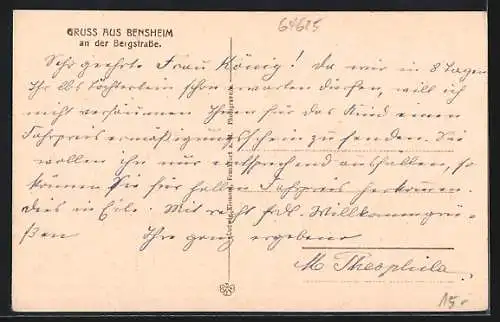 64625
GRUSS AUS BENSHEIM
an der Bergstraße.
Sehr geehrte Frau König! Da wir in 8 Tagen
Ihr lbs Töchterlein schon erwarten dürfen, will ich
nicht versäumen Ihnen für das Kind einen
Fahrpreisermäßigungsschein zu senden. Sie
wollen ihn nur entsprechend ausfüllen, so
können Sie für halben Fahrpreis herkommen.
Dies in Eile. Mit recht frdl. Willkommgrü-
ßen Ihre ganz ergebene
M. Theophila.
Ludwig Klement, Frankfurt a. M.
15,-